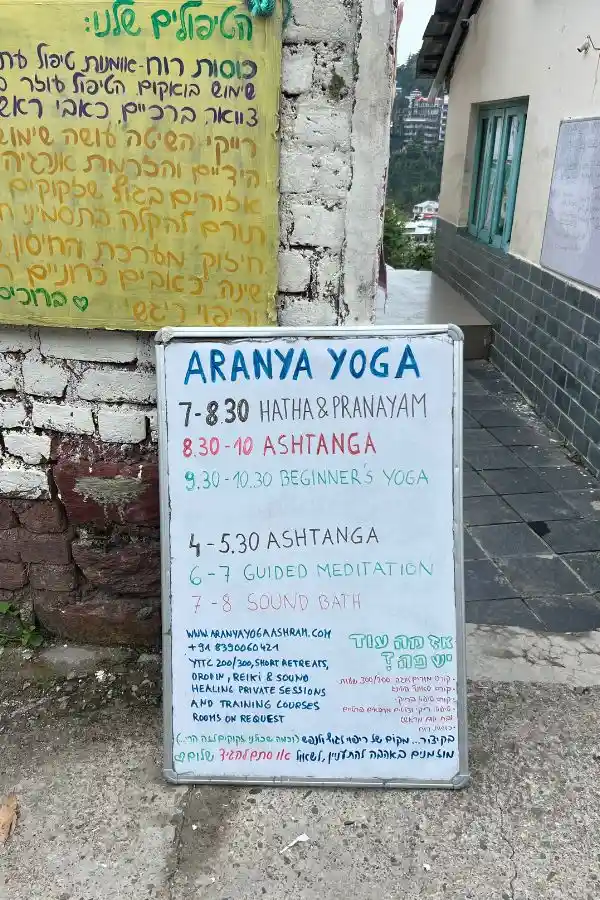 הטיפולים שלנו:
כוסות רוח-אומנות טיפול עת
שימוש בואקום. הטיפול עוזר ב
צוואר ברכיים, כאבי ראש
רייקי השיטה עושה שימוש
הידיים והזרמת אנרגיה
אזורים בגוף שזקוקים
תורם להקלה בתסמיני
חיזוק מערכת החיסון
שינה, כאבים כרוניים,
וריפוי ריגש
ברוכים ♡
ARANYA YOGA
7-8.30 HATHA & PRANAYAM
8.30-10 ASHTANGA
9.30-10.30 BEGINNER'S YOGA
4-5.30 ASHTANGA
6-7 GUIDED MEDITATION
7-8 SOUND BATH
WWW.ARANYAYOGAASHRAM.COM
+91 8390060421
YTTC 200/300, SHORT RETREATS,
DROPIN, REIKI & SOUND
HEALING PRIVATE SESSIONS
AND TRAINING COURSES
ROOMS ON REQUEST
אז מה עוד
יש פה?
קורס מורים ליוגה 200/300 שעות
בקיצור... מקום של ריפוי לגוף ולנפש (וכמה שכולנו זקוקים לזה הרי...)
מוזמנים באהבה להתעניין, לשאול או סתם להגיד שלום ♡